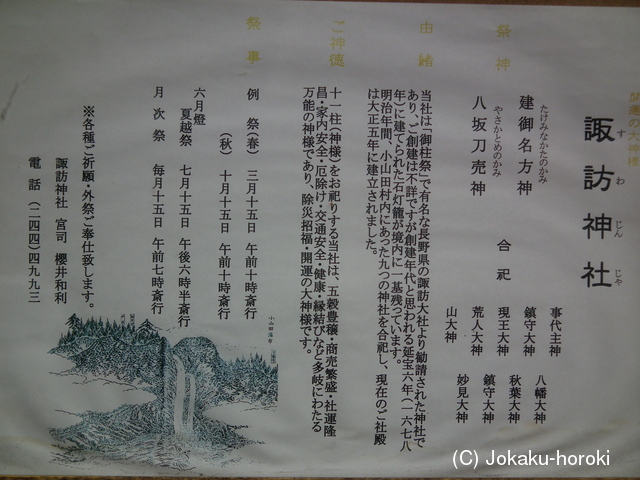 開運の神様
諏訪神社
すわじんじゃ
祭神
建御名方神
たけみなかたのかみ
八坂刀売神
やさかとめのかみ
合祀
事代主神
八幡大神
鎮守大神
秋葉大神
現王大神
鎮守大神
荒人大神
妙見大神
山大神
由緒
当社は「御柱祭」で有名な長野県の諏訪大社より勧請された神社で
あり、ご創建は不詳ですが創建年代と思われる延宝六年(一六七八
年)に建てられた石灯籠が境内に一基残っています。
明治年間、小山田村内にあった九つの神社を合祀し、現在のご社殿
は大正五年に建立されました。
ご神徳
十一柱(神様)をお祀りする当社は、五穀豊穣・商売繁盛・社運隆
昌・家内安全・厄除け・交通安全・健康・縁結びなど多岐にわたる
万能の神様であり、除災招福・開運の大神様です。
祭事
例祭(春) 三月十五日 午前十時斎行
(秋) 十月十五日 午前十時斎行
六月燈
夏越祭 七月十五日 午後六時半斎行
月次祭 毎月十五日 午前七時斎行
※各種ご祈願・外祭ご奉仕致します。
諏訪神社 宮司 櫻井和利
電話(二四四)四九九三
(C) Jokaku-horoki